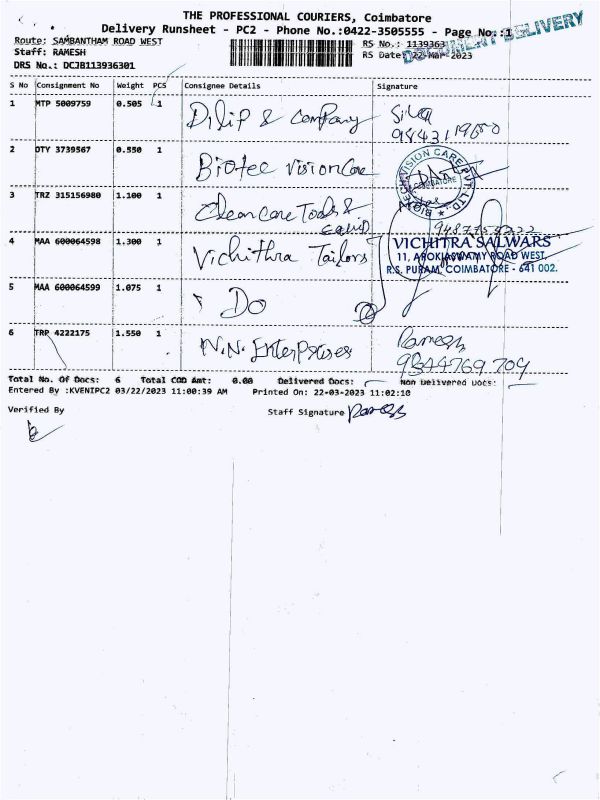 THE PROFESSIONAL COURIERS, Coimbatore
Delivery Runsheet - PC2 - Phone No.:0422-3505555 - Page No.:1
DOCUMENT DELIVERY
Route: SAMBANTHAM ROAD WEST
RS No.: 1139363
Staff: RAMESH
RS Date: 22-Mar-2023
DRS No.: DCJB113936301
S No Consignment No Weight PCS Consignee Details Signature
1 MTP 5009759 0.505 1 Dilip & Company
2 DTY 3739567 0.550 1 Biotec Vision Care
BIOTECH VISION CARE PVT. LTD.
COIMBATORE
3 TRZ 315156980 1.100 1 Clean Care Tools &
Equip
4 MAA 600064598 1.300 1 Vichithra Tailors
VICHITRA SALWARS
11, AROKIASWAMY ROAD WEST,
R.S. PURAM, COIMBATORE - 641 002.
5 MAA 600064599 1.075 1 Do
6 TRP 4222175 1.550 1 N.N. Enterprises
Ramesh
9344769 709
Total No. Of Docs: 6 Total COD Amt: 0.00 Delivered Docs: Non Delivered Docs:
Entered By :KVENIPC2 03/22/2023 11:00:39 AM Printed On: 22-03-2023 11:02:10
Verified By
Staff Signature Ramesh